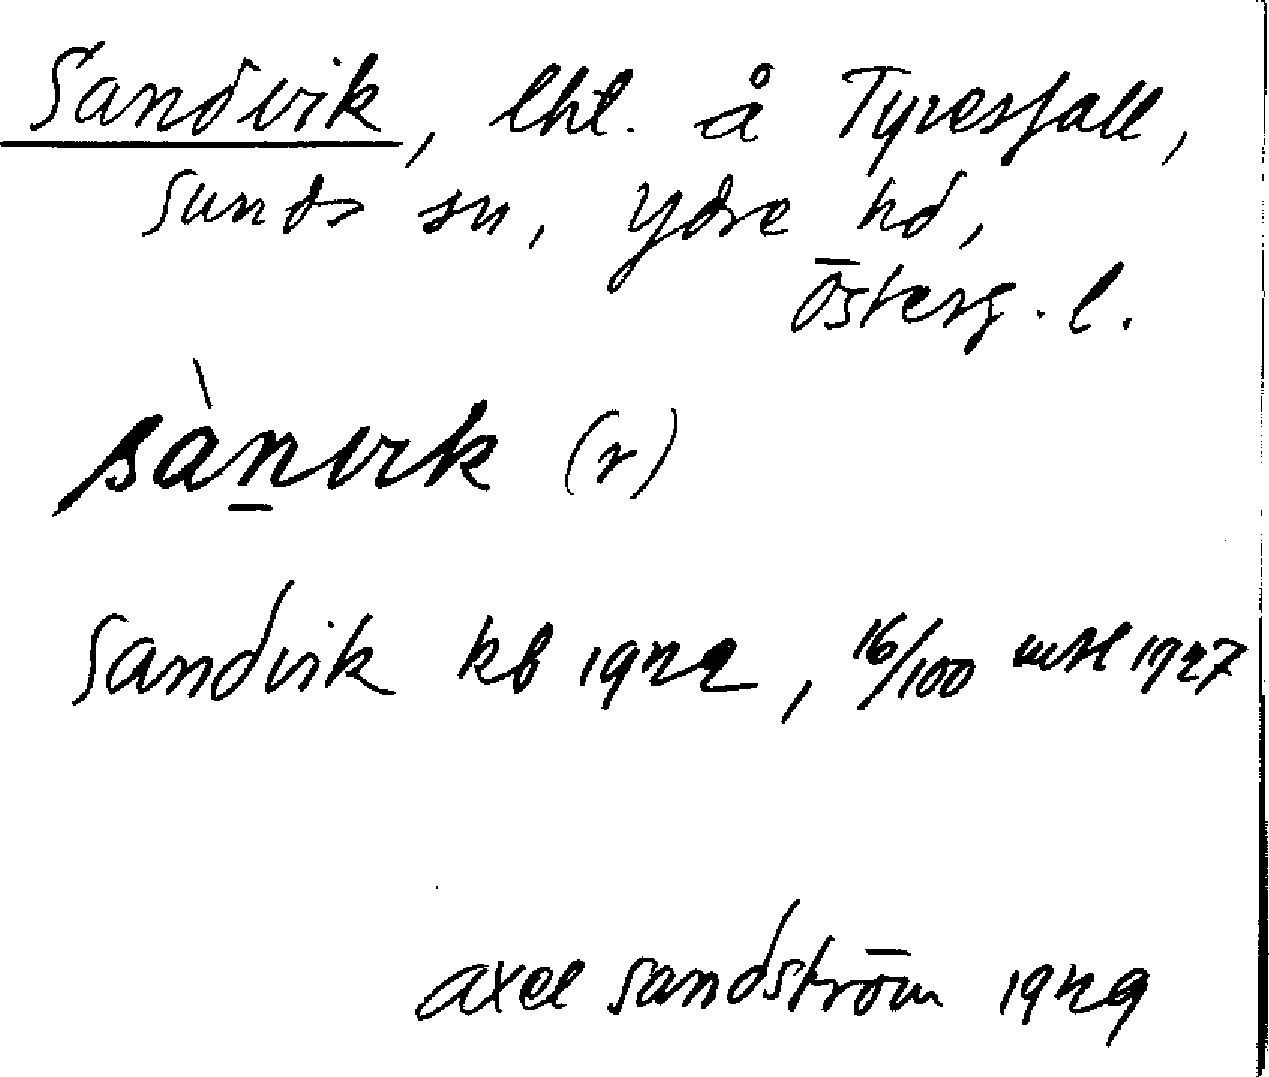 Sandvik, lht. å Tyresfall,
Sunds sn, Ydre hd,
Österg. l.
sànvik (r)
Sandvik kb 1922, 16/100 mtl 1927
Axel Sandström 1929